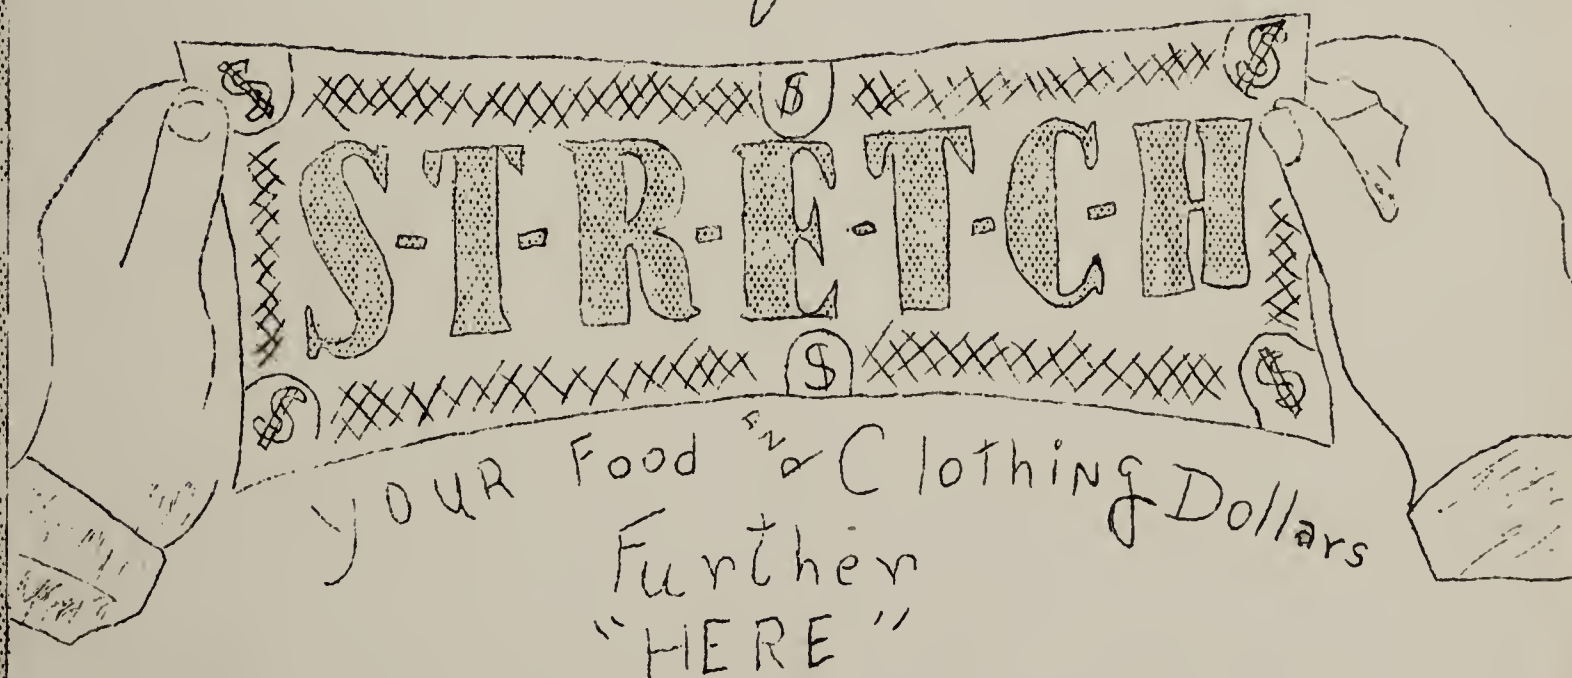 $ $ $
S-T-R-E-T-C-H
$ $ $
your Food and Clothing Dollars
Further
"HERE"